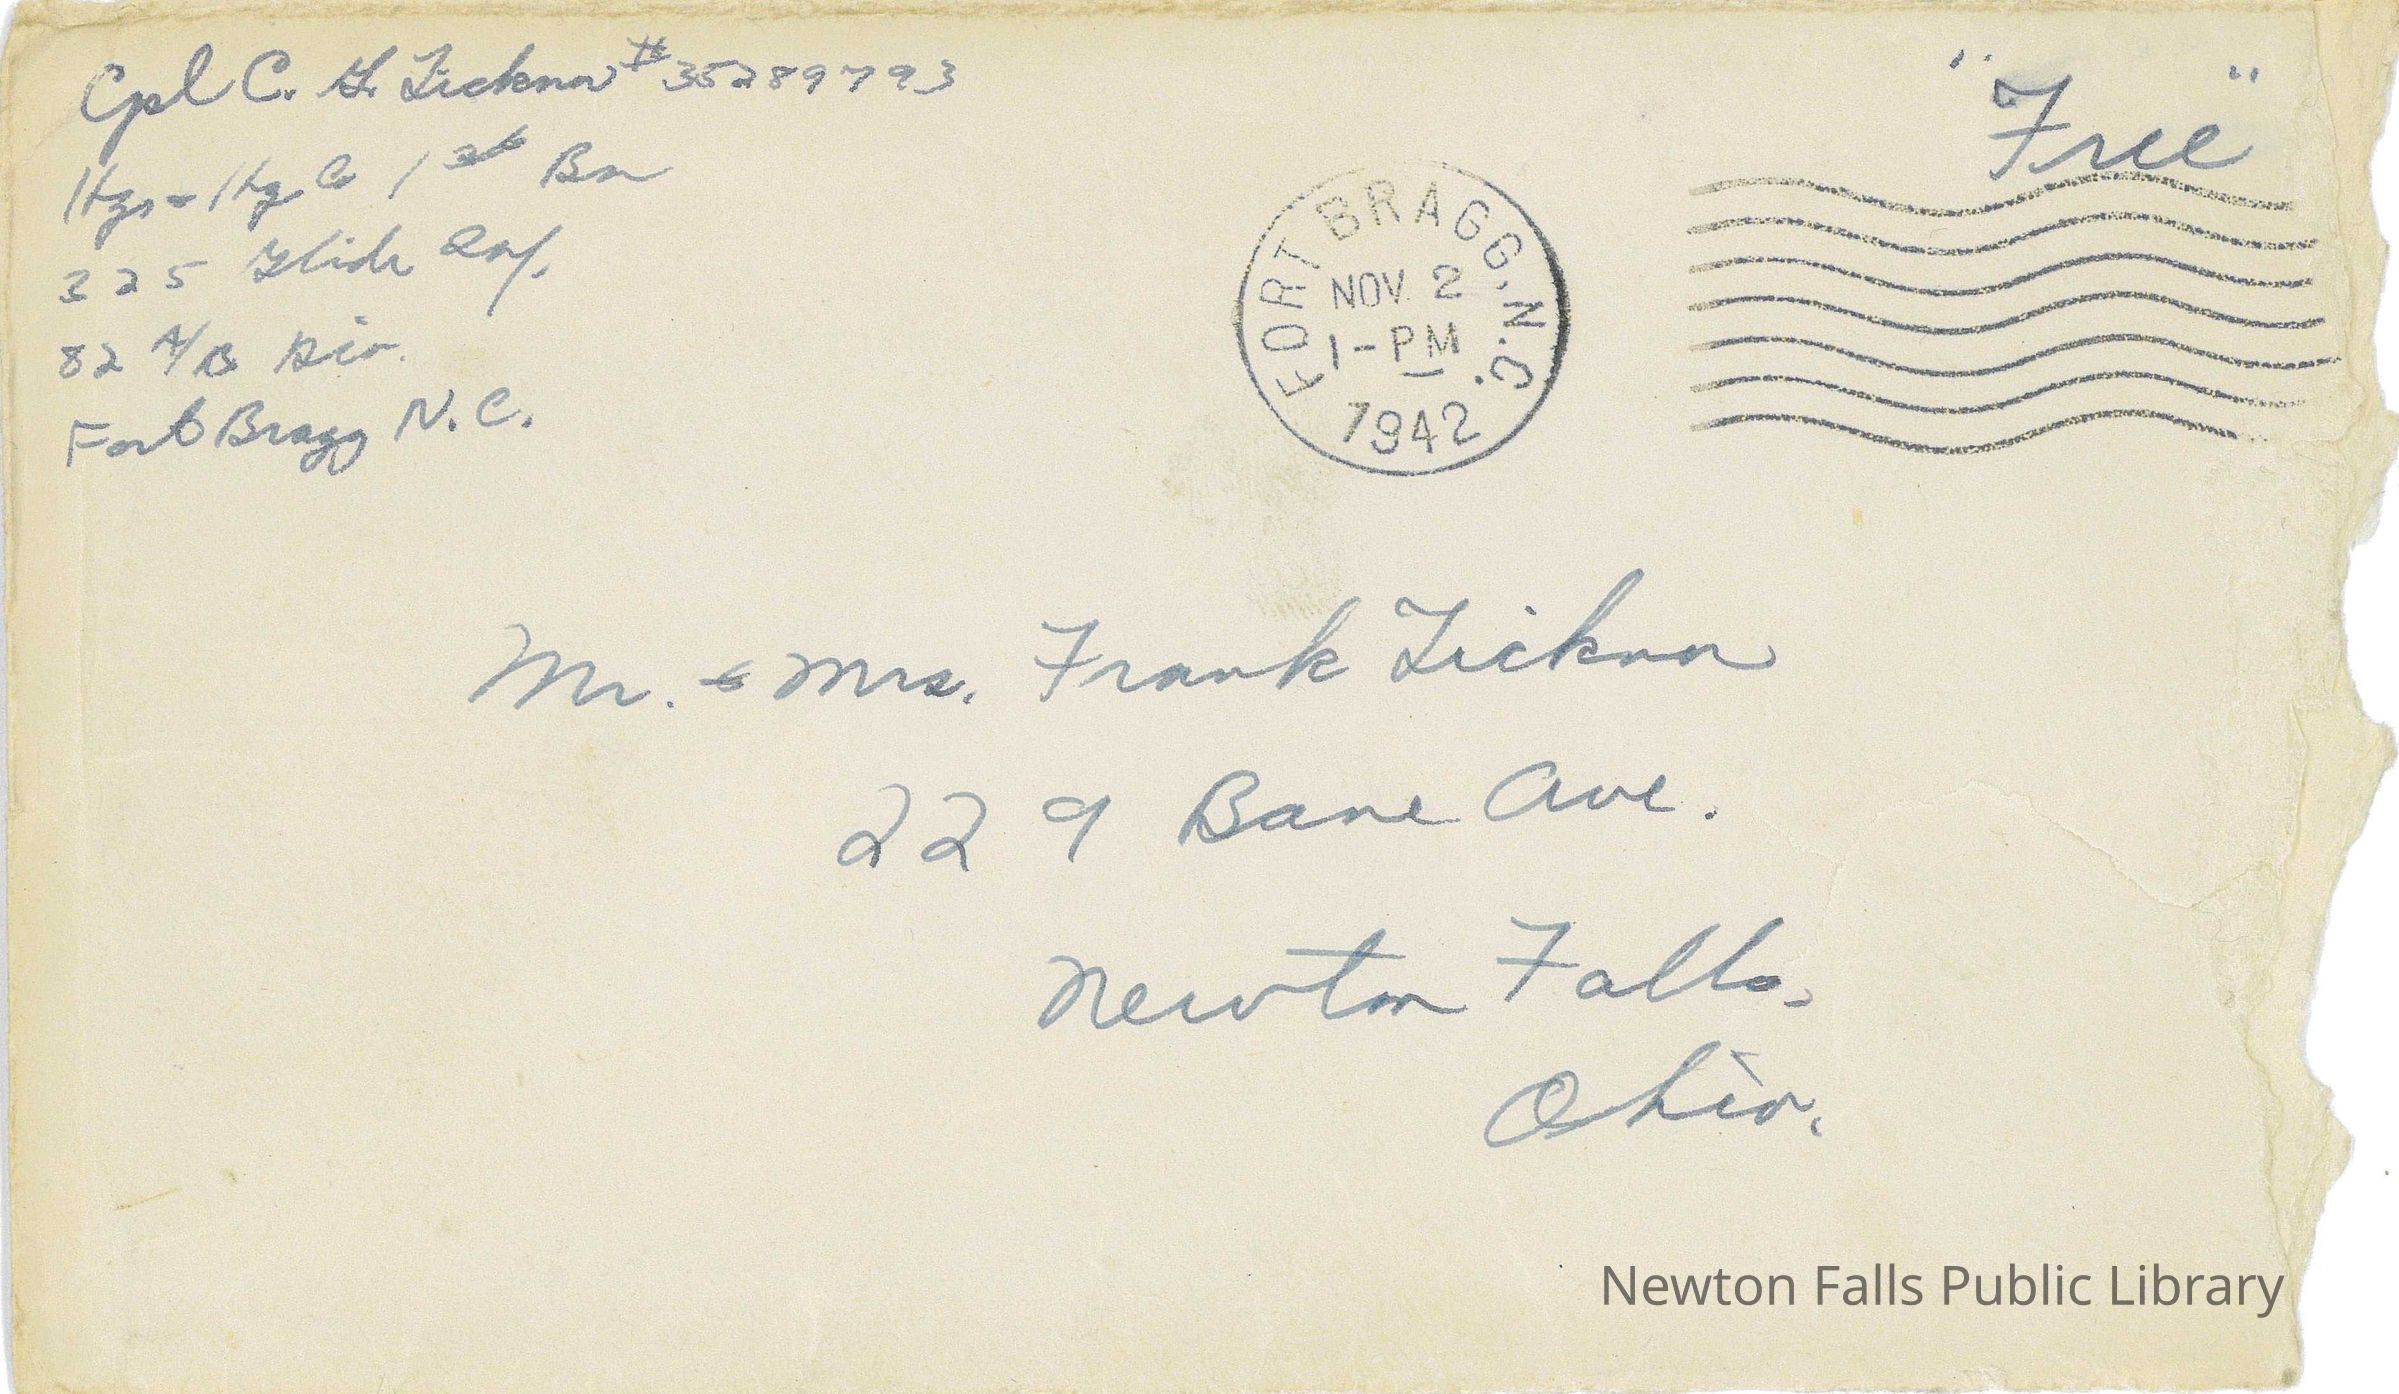 Cpl C. G. Ticknor #35289793
Hqs - Hq Co 1st Bn
325 Glider Inf.
82 A/B Div.
Fort Bragg N.C.
"Free"
FORT BRAGG, N.C.
NOV 2
1-PM
1942
Mr. & Mrs. Frank Ticknor
229 Bane Ave.
Newton Falls,
Ohio.
Newton Falls Public Library